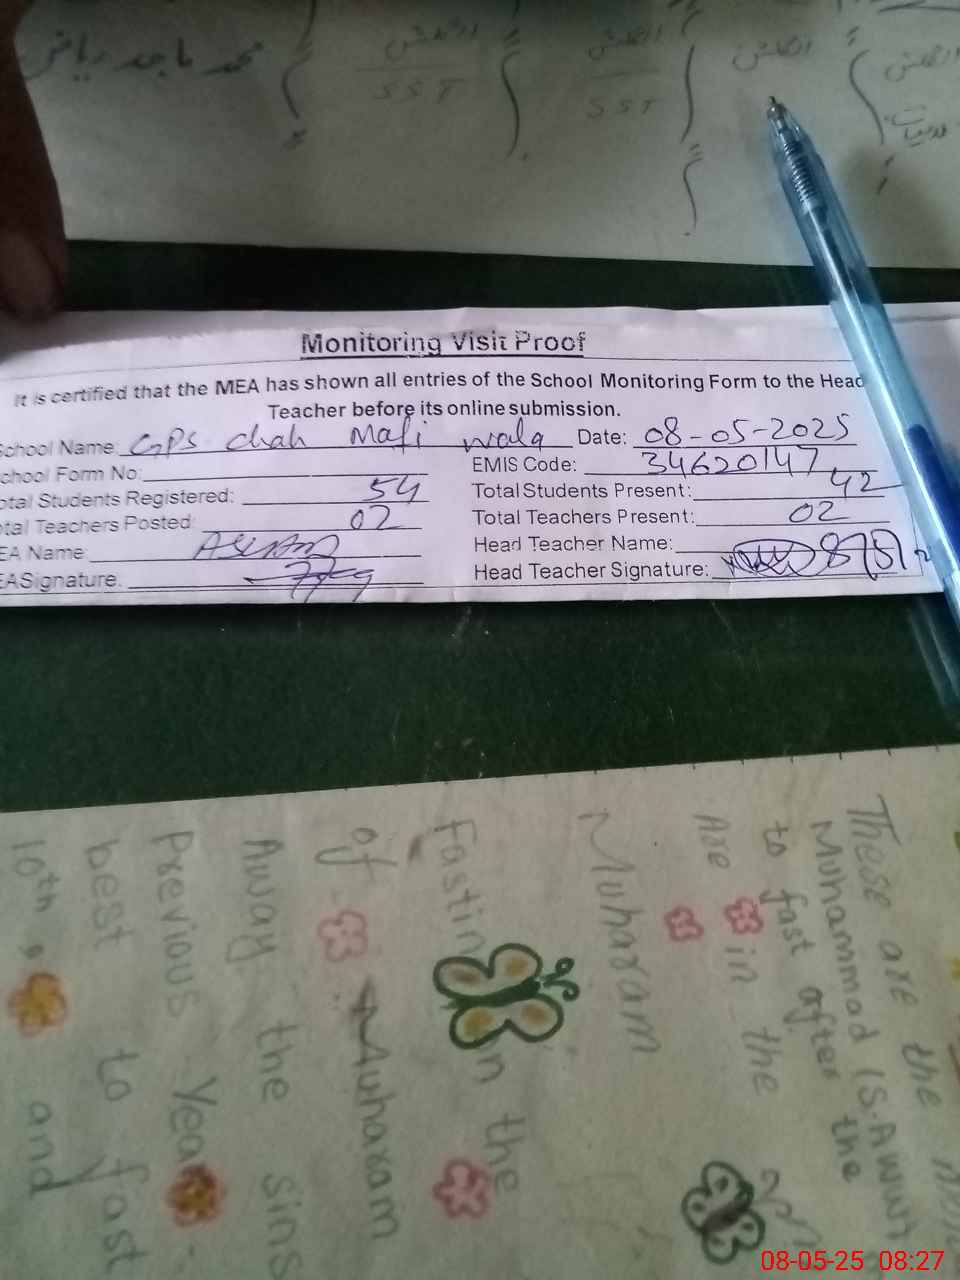 محمد ماجد ریاض
انگلش
SST
انگلش
SST
انگلش
انگلش
Monitoring Visit Proof
It is certified that the MEA has shown all entries of the School Monitoring Form to the Head
Teacher before its online submission.
School Name: GPS chah Mafi wala Date: 08-05-2025
chool Form No: EMIS Code: 34620147
otal Students Registered: 54 Total Students Present: 42
otal Teachers Posted: 02 Total Teachers Present: 02
EA Name: Head Teacher Name:
EA Signature: Head Teacher Signature:
These are the
Muhammad (S.A.W
to fast after the
Are in the
Muharam
Fasting in the
of Muharam
Away the sins
Previous Year
best to fast
10th, and
08-05-25 08:27